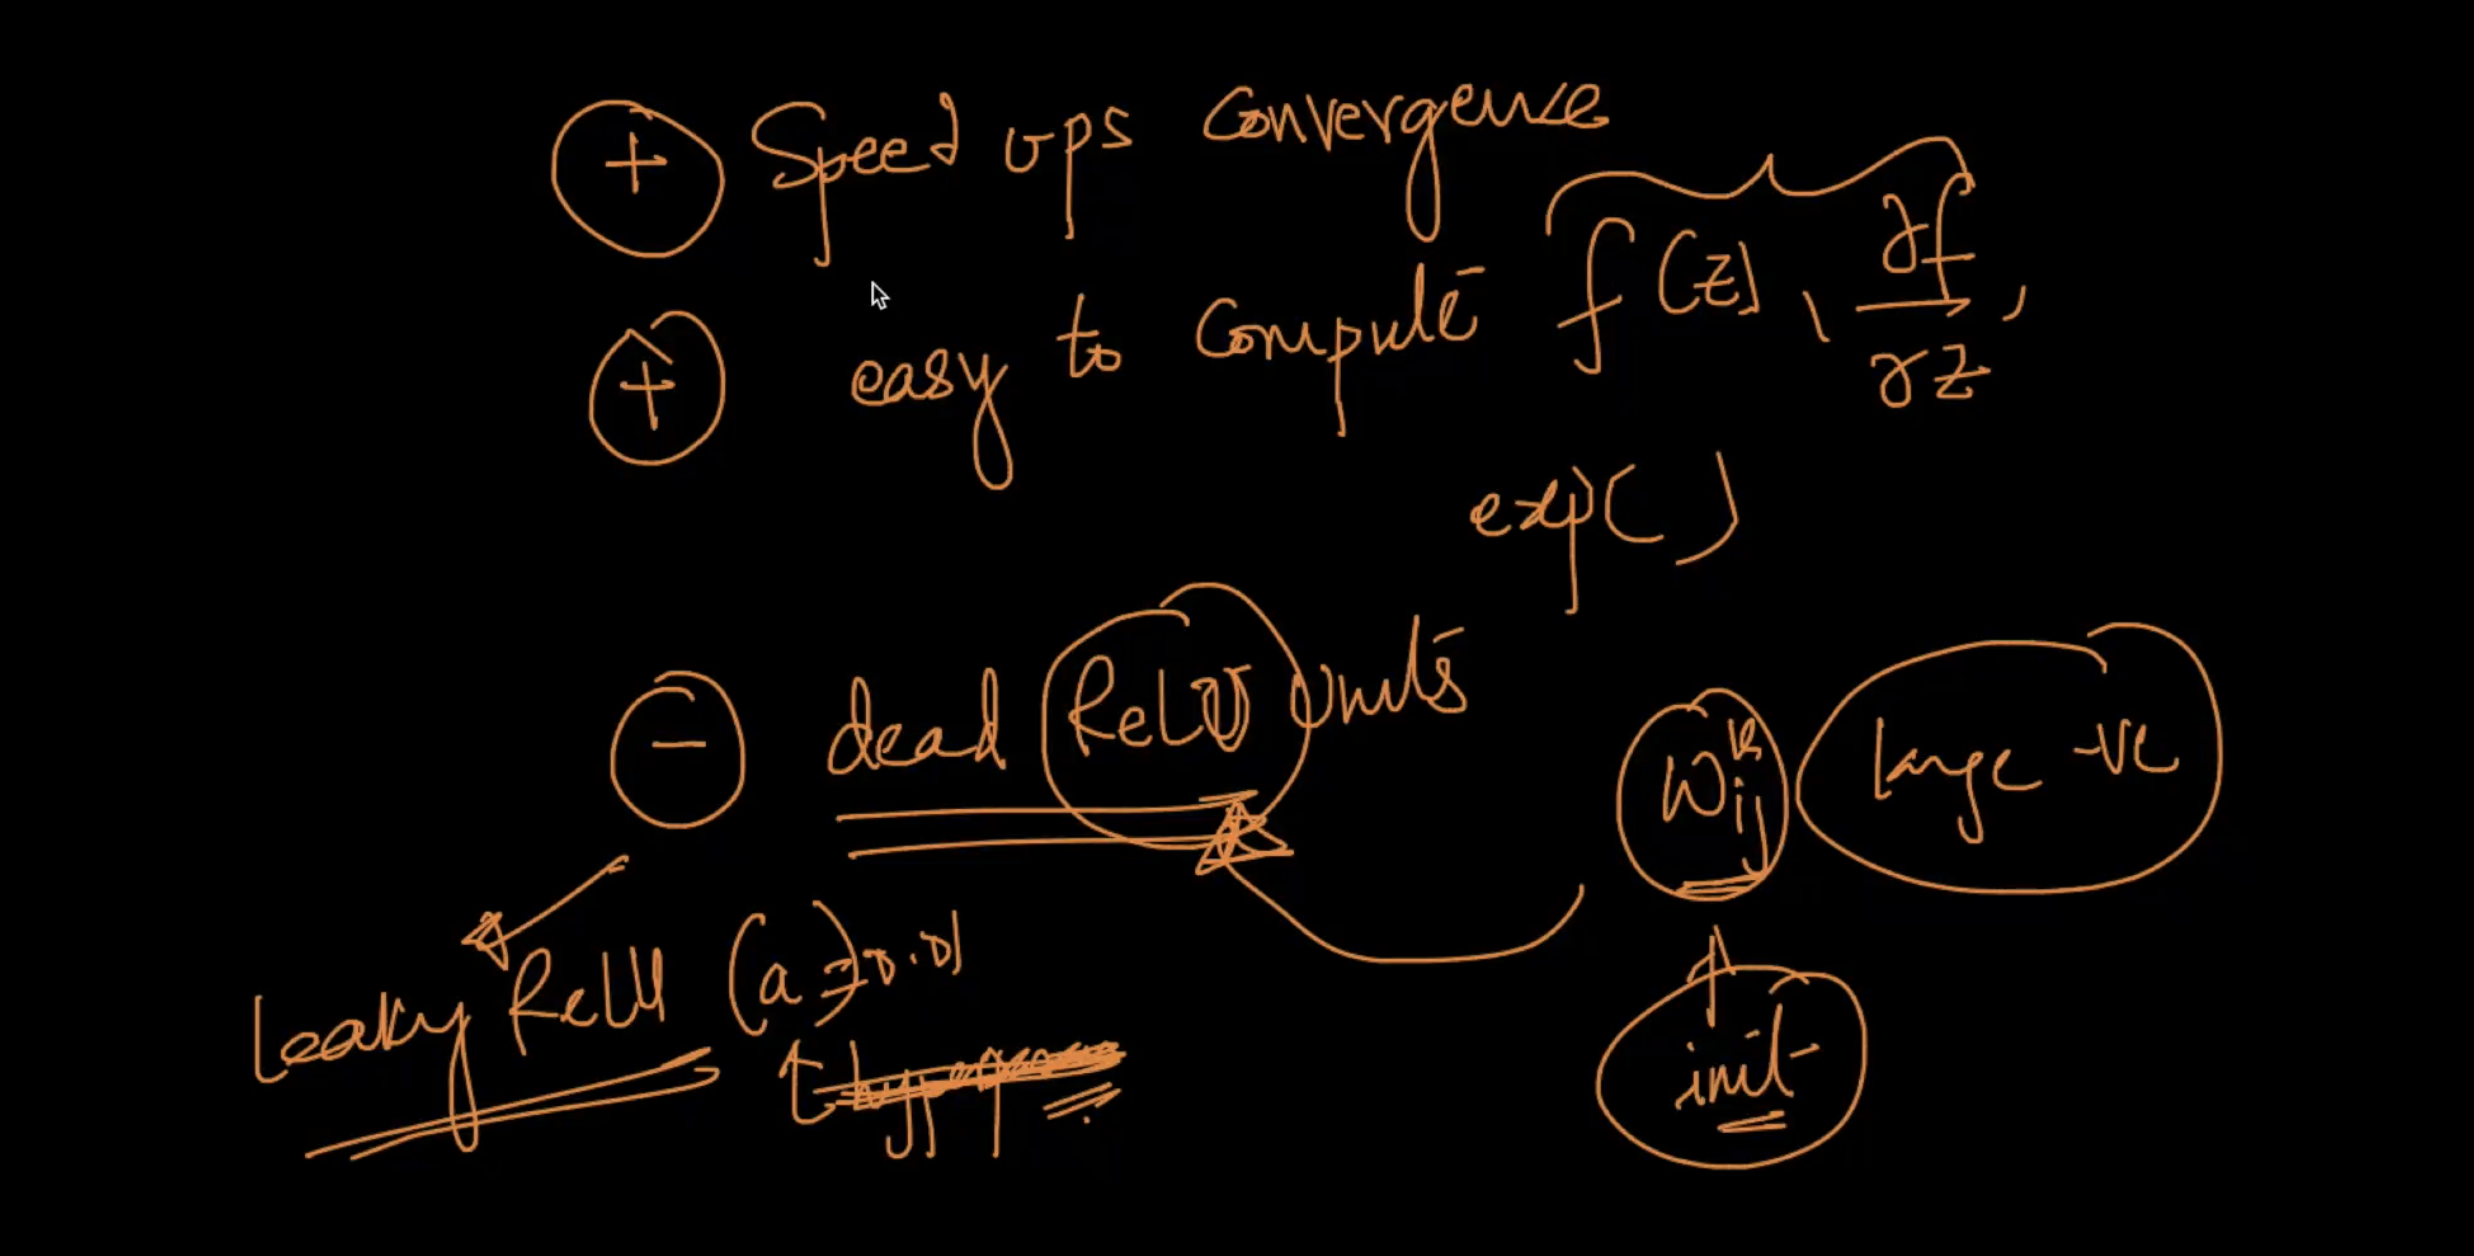 + Speed ups Convergence
+ easy to compute f(z), ∂f/∂z,
exp( )
- dead ReLU Units
Wᵏij large -ve
Leaky ReLU (a = 0.01)
init